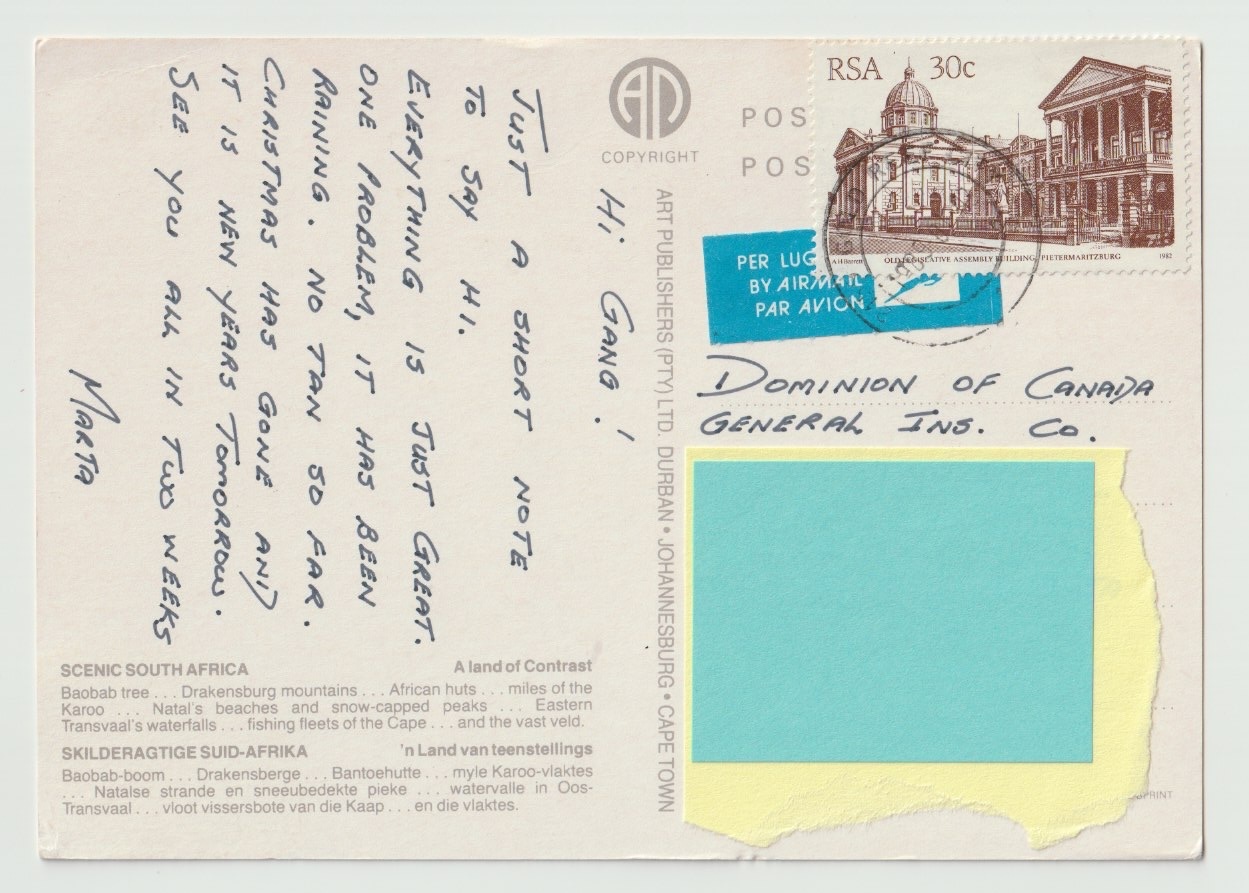 Hi GANG!
JUST A SHORT NOTE
TO SAY HI.
EVERYTHING IS JUST GREAT.
ONE PROBLEM, IT HAS BEEN
RAINING. NO TAN SO FAR.
CHRISTMAS HAS GONE AND
IT IS NEW YEARS TOMORROW.
SEE YOU ALL IN TWO WEEKS
MARTA
SCENIC SOUTH AFRICA A land of Contrast
Baobab tree . . . Drakensburg mountains . . . African huts . . . miles of the
Karoo . . . Natal's beaches and snow-capped peaks . . . Eastern
Transvaal's waterfalls . . . fishing fleets of the Cape . . . and the vast veld.
SKILDERAGTIGE SUID-AFRIKA 'n Land van teenstellings
Baobab-boom . . . Drakensberge . . . Bantoehutte . . . myle Karoo-vlaktes
. . . Natalse strande en sneeubedekte pieke . . . watervalle in Oos-
Transvaal . . . vloot vissersbote van die Kaap . . . en die vlaktes.
COPYRIGHT
ART PUBLISHERS (PTY) LTD. DURBAN • JOHANNESBURG • CAPE TOWN
POS
POS
RSA 30c
OLD LEGISLATIVE ASSEMBLY BUILDING, PIETERMARITZBURG 1982
PER LUG
BY AIRMAIL
PAR AVION
DOMINION OF CANADA
GENERAL INS. CO.